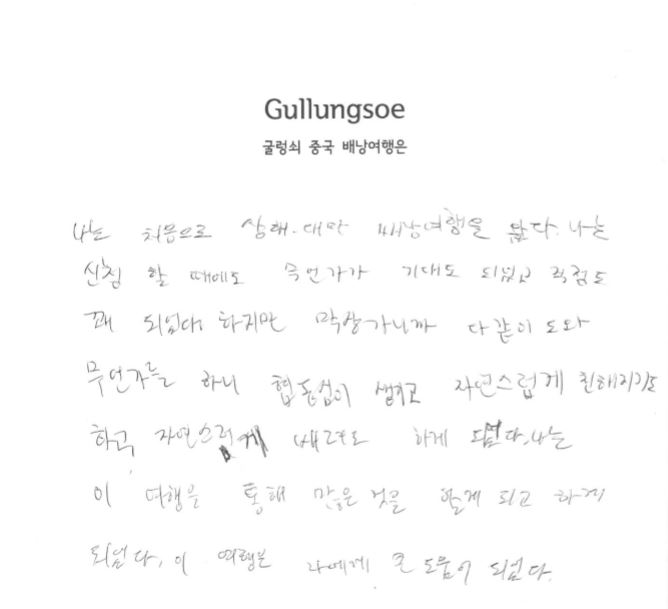 Gullungsoe
굴렁쇠 중국 배낭여행은
나는 처음으로 상해.대만 배낭여행을 왔다. 나는
신청 할 때에도 무언가가 기대도 되었고 걱정도
꽤 되었다. 하지만 막상가니까 다같이 도와
무언가를 하니 협동심이 생기고 자연스럽게 친해지기도
하고, 자연스럽게 배려도 하게 되었다.나는
이 여행을 통해 많은 것을 알게 되고 하게
되었다. 이 여행은 나에게 큰 도움이 되었다.